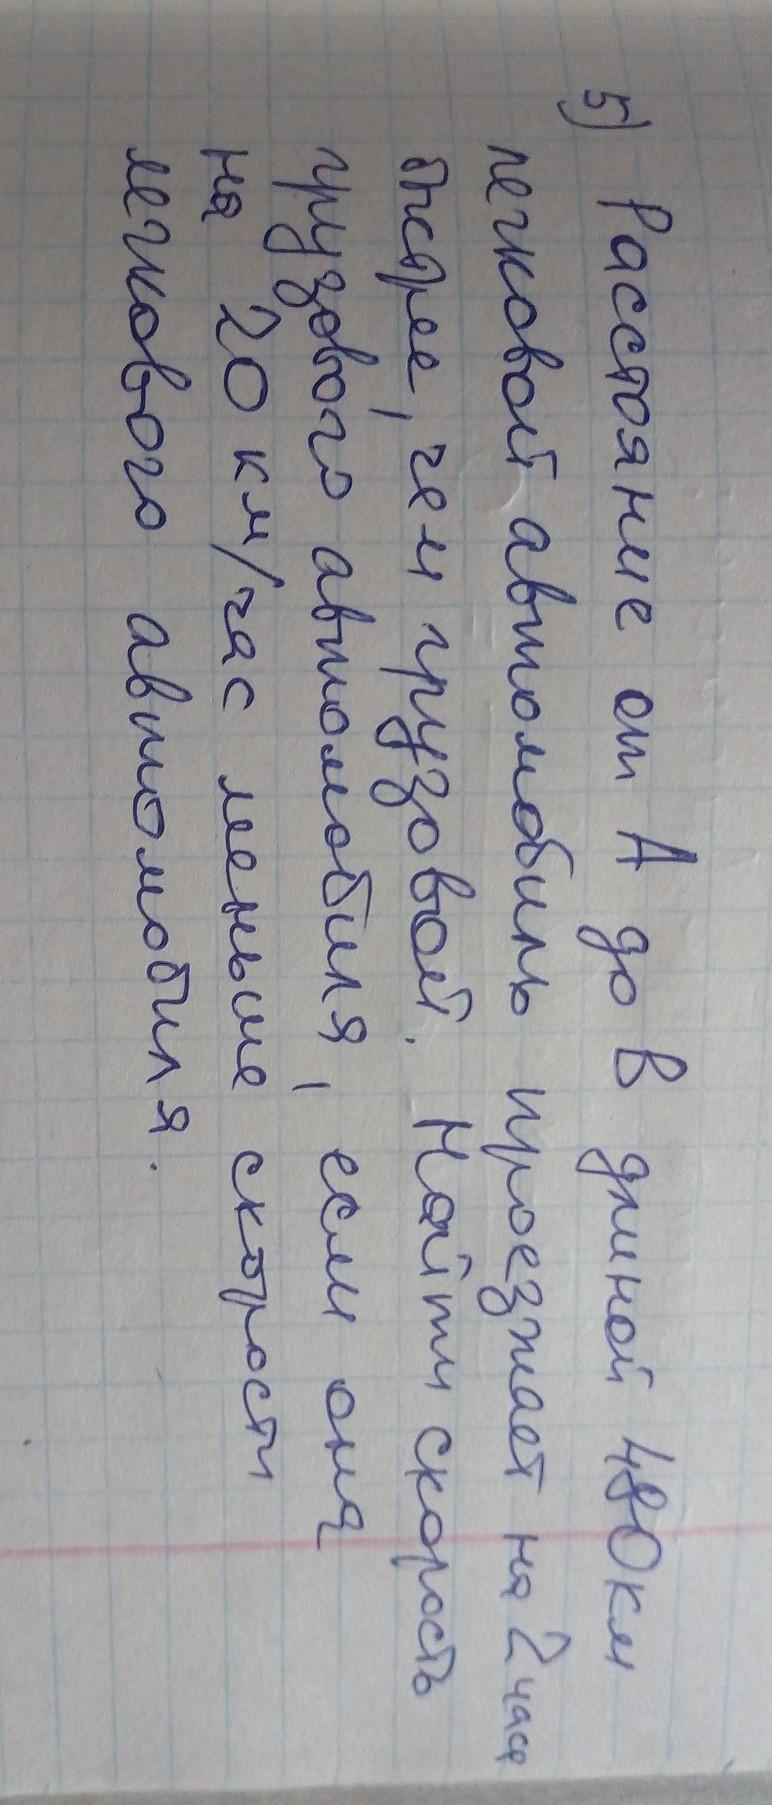 5) Расстояние от А до В длиной 480км
легковой автомобиль проезжает на 2 часа
быстрее, чем грузовой. Найти скорость
грузового автомобиля, если она
на 20 км/час меньше скорости
легкового автомобиля.